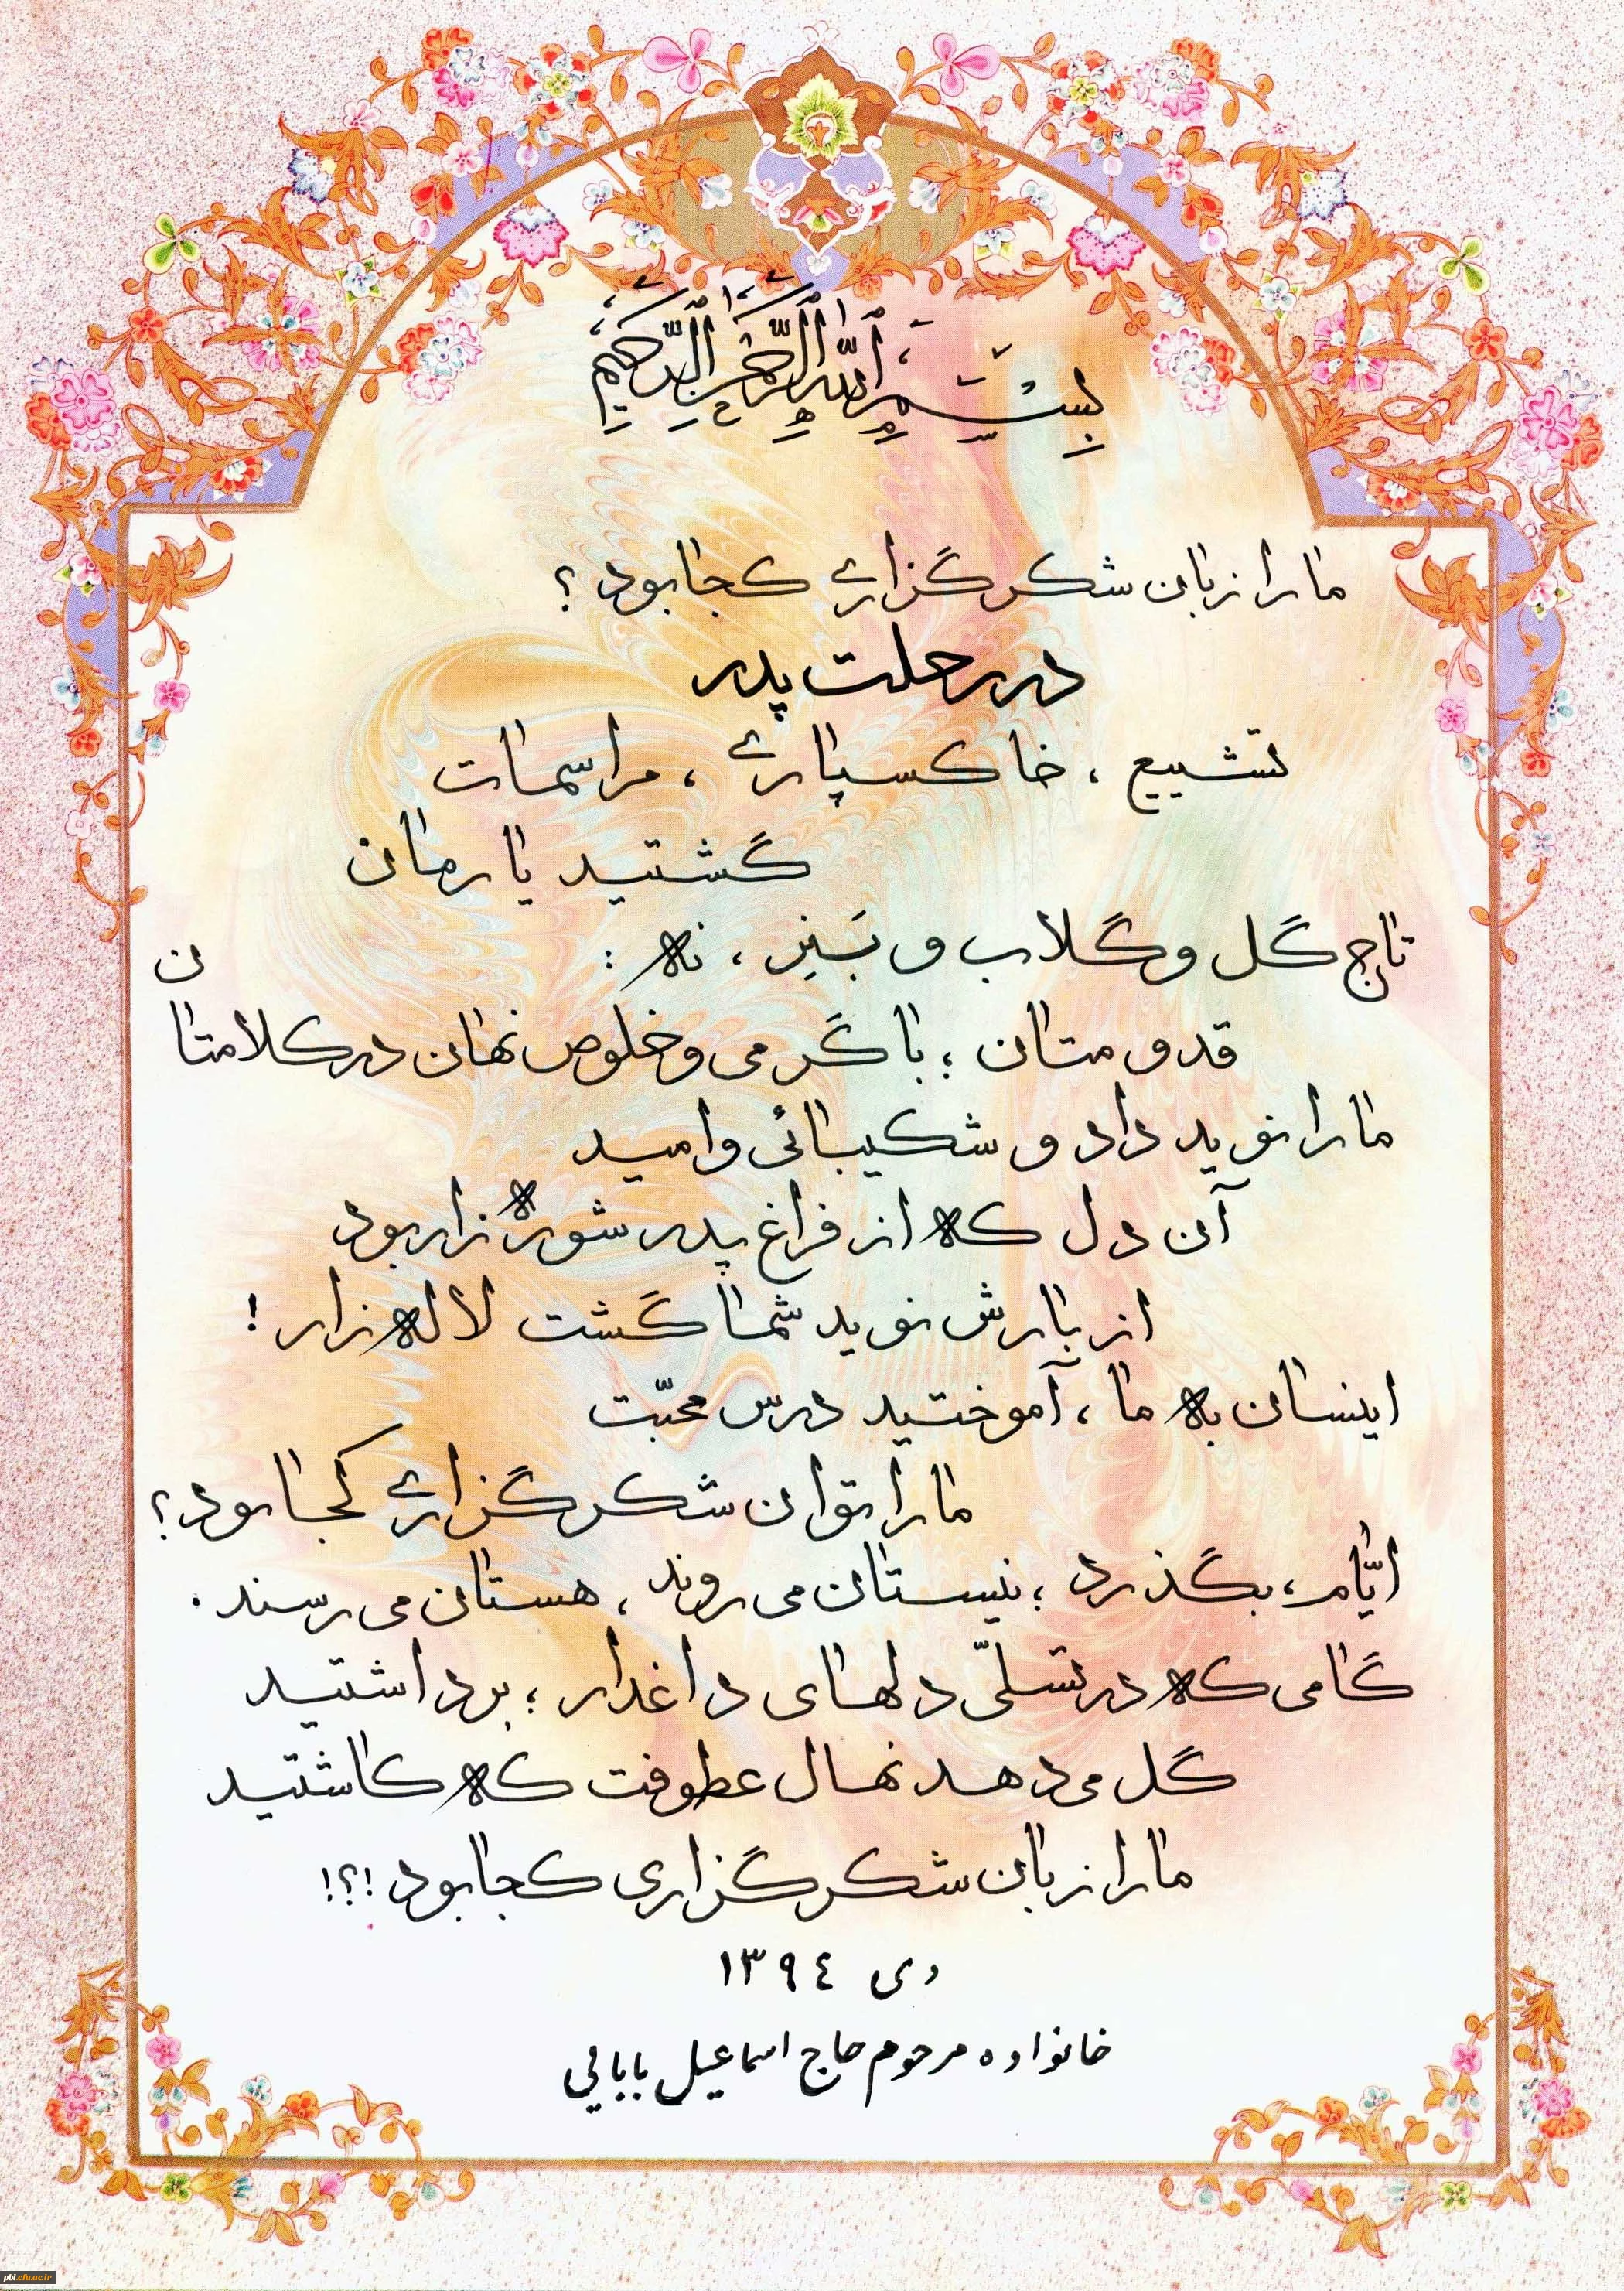 بِسْمِ ٱللَّهِ ٱلرَّحْمَٰنِ ٱلرَّحِيمِ
ما را زبان شکرگزاری کجا بود ؟
در رحلت پدر
تشییع ، خاکسپاری ، مراسمات
گشتید یارمان
تاج گل و گلاب و بَنِر ، نه :
قدومتان ؛ با گرمی و خلوص نهان در کلامتان
ما را نوید داد و شکیبائی و امید
آن دل که از فراغ پدر شوره زار بود
از بارش نوید شما گشت لاله زار !
اینسان به ما ، آموختید درس محبّت
ما را توان شکرگزاری کجا بود ؟
ایّام ، بگذرد ؛ نیستان می روند ، هستان می رسند .
گامی که در تسلّی دلهای داغدار ؛ برداشتید
گل می دهد نهال عطوفت که کاشتید
ما را زبان شکرگزاری کجا بود !؟!
دی ١٣٩٤
خانواده مرحوم حاج اسماعیل بابایی
pbi.cfu.ac.ir